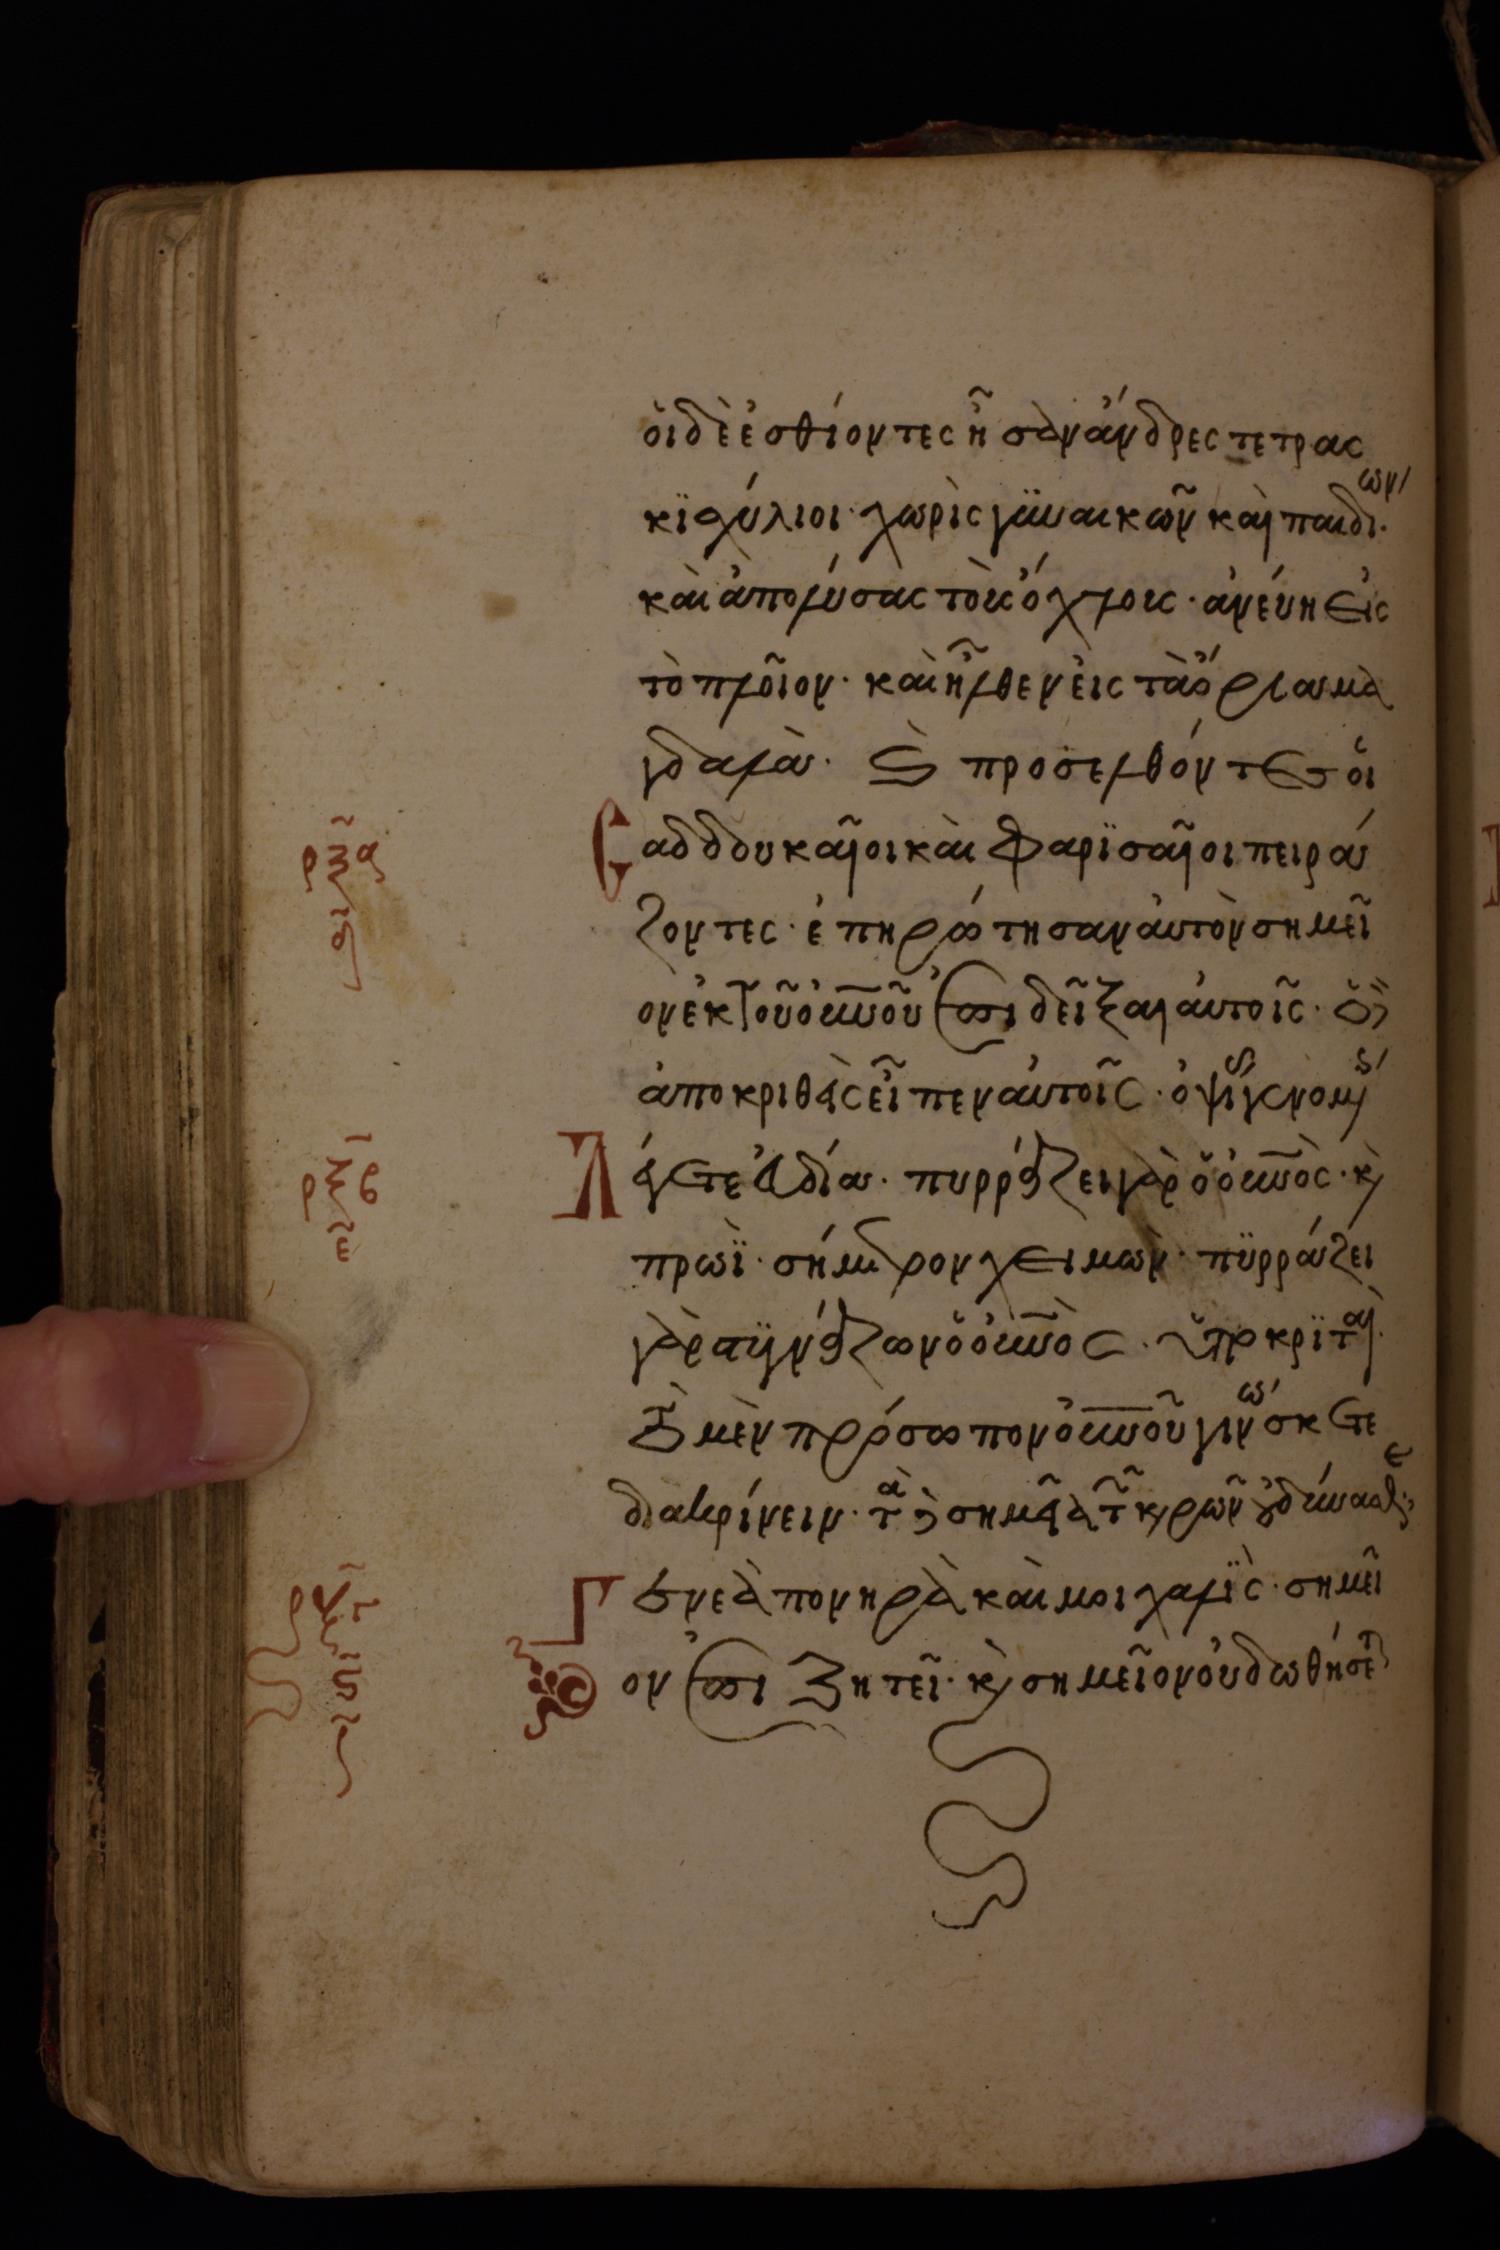 οἱ δὲ ἐσθίοντες ἦσαν ἄνδρες τετρακισ
κϊσχύλιοι· χωρὶς γϋναικῶν καὶ παιδίων
καὶ ἀπολύσας τοὺς ὄχλους· ἀνέβη εἰς
τὸ πλοῖον· καὶ ἦλθεν εἰς τὰ ὅρια μα
γδαλά· Ϛ προσελθόντες οἱ
Σαδδουκαῖοι καὶ Φαρϊσαῖοι πειρά
ζοντες· ἐπηρώτησαν αὐτὸν σημεῖ
ον ἐκ τοῦ οὐνοῦ ἐπιδεῖξαι αὐτοῖς· ὁ δὲ
ἀποκριθεὶς εἶπεν αὐτοῖς· ὀψίας γενομένης
λέγετε εὐδία· πυρράζει γὰρ ὁ οὐνὸς· κ
πρωΐ· σήμερον χειμὼν· πϋρράζει
γὰρ στϋγνάζων ὁ οὐνὸς· ὑποκρϊταὶ·
τὸ μὲν πρόσωπον οὐνοῦ γινώσκετε
διακρίνειν· τὰ δὲ σημεῖα τῶν κρῶν οὐ δύνασθε·
Γενεὰ πονηρὰ καὶ μοιχαλῒς· σημεῖ
ον ἐπιζητεῖ· κ σημεῖον οὐ δωθήσετ
ρξα
ρξβ
ε
ρξγ